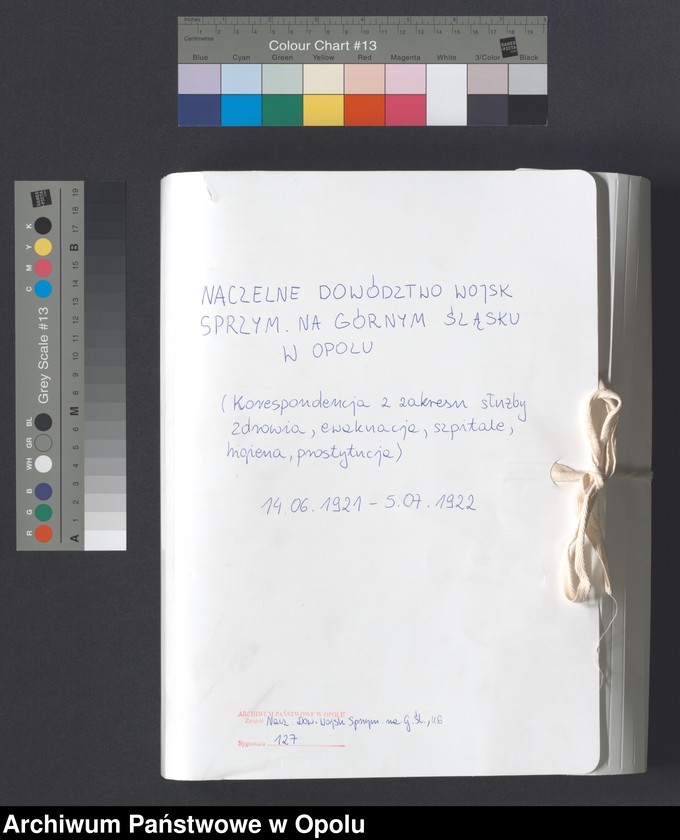 Colour Chart #13
Inches
Centimetres
Blue Cyan Green Yellow Red Magenta White 3/Color Black
Grey Scale #13
C M Y K
R G B WH GR BL
A 1 2 3 4 5 6 M 8 9 10 11 12 13 14 15 B 17 18 19
NACZELNE DOWÓDZTWO WOJSK
SPRZYM. NA GÓRNYM ŚLĄSKU
W OPOLU
(Korespondencja z zakresu służby
zdrowia, ewakuacja, szpitale,
higiena, prostytucja)
14.06.1921 - 5.07.1922
ARCHIWUM PAŃSTWOWE W OPOLU
Zespół Nacz. Dow. Wojsk Sprzym. na G. Śl.
Sygnatura 127
Archiwum Państwowe w Opolu